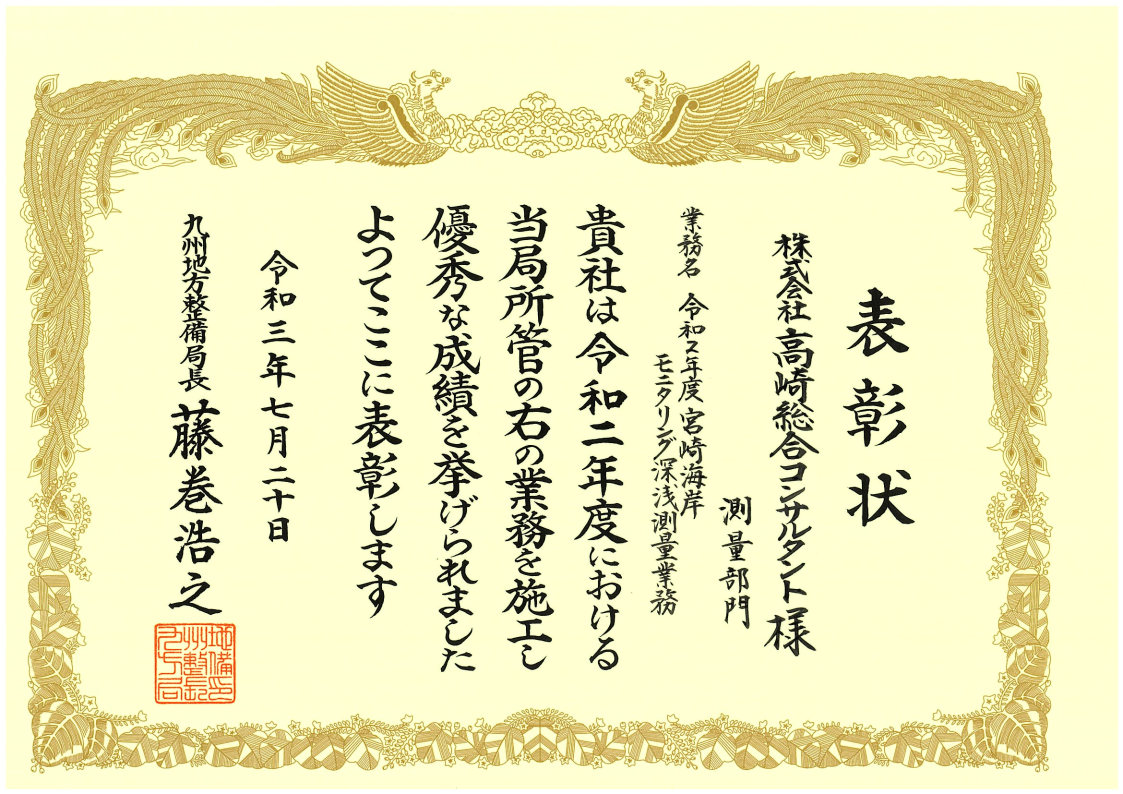 表彰状
株式会社高崎総合コンサルタント様
測量部門
業務名 令和2年度 宮崎海岸
モニタリング深浅測量業務
貴社は令和二年度における
当局所管の右の業務を施工し
優秀な成績を挙げられました
よってここに表彰します
令和三年七月二十日
九州地方整備局長 藤巻浩之